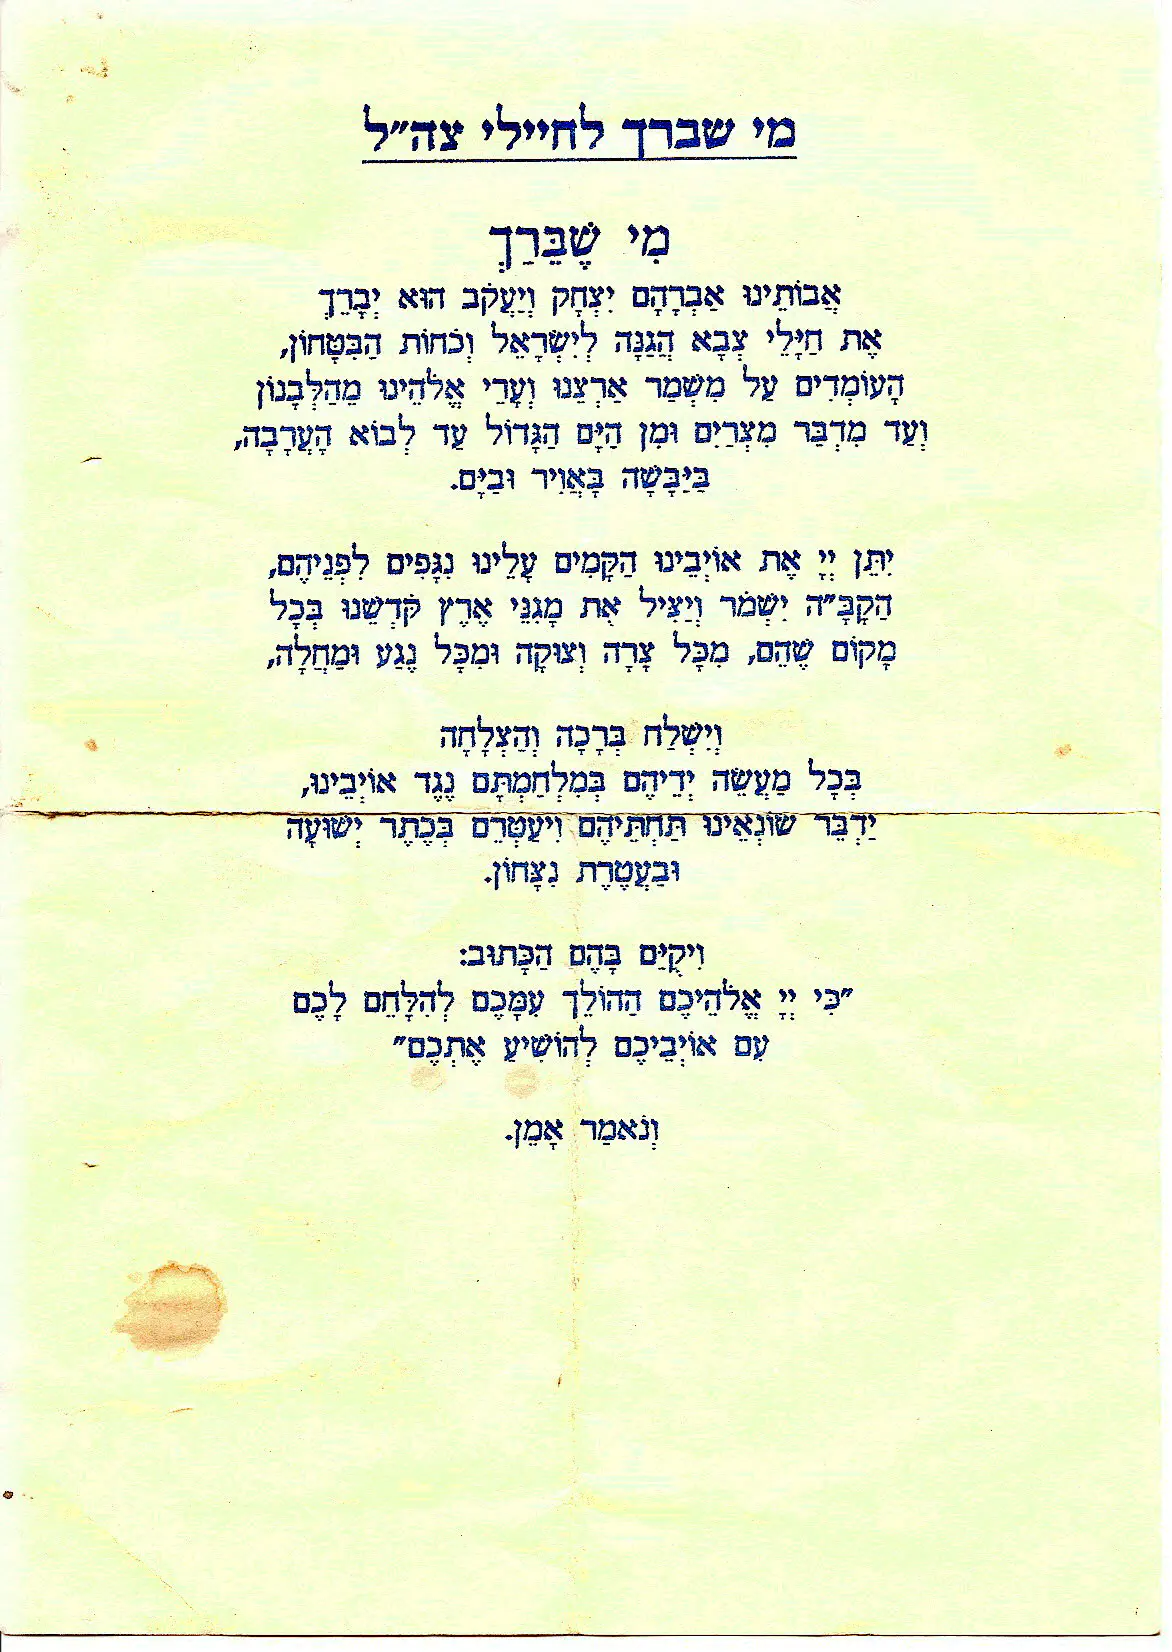 מי שברך לחיילי צה״ל
מִי שֶׁבֵּרַךְ
אֲבוֹתֵינוּ אַבְרָהָם יִצְחָק וְיַעֲקֹב הוּא יְבָרֵךְ
אֶת חַיָּלֵי צְבָא הֲגַנָּה לְיִשְׂרָאֵל וְכֹחוֹת הַבִּטָּחוֹן,
הָעוֹמְדִים עַל מִשְׁמַר אַרְצֵנוּ וְעָרֵי אֱלֹהֵינוּ מֵהַלְּבָנוֹן
וְעַד מִדְבַּר מִצְרַיִם וּמִן הַיָּם הַגָּדוֹל עַד לְבוֹא הָעֲרָבָה,
בַּיַּבָּשָׁה בָּאֲוִיר וּבַיָּם.
יִתֵּן יְיָ אֶת אוֹיְבֵינוּ הַקָּמִים עָלֵינוּ נִגָּפִים לִפְנֵיהֶם,
הַקָּבָּ״ה יִשְׁמֹר וְיַצִּיל אֶת מָגִנֵּי אֶרֶץ קֹדְשֵׁנוּ בְּכָל
מָקוֹם שֶׁהֵם, מִכָּל צָרָה וְצוּקָה וּמִכָּל נֶגַע וּמַחֲלָה,
וְיִשְׁלַח בְּרָכָה וְהַצְלָחָה
בְּכָל מַעֲשֵׂה יְדֵיהֶם בְּמִלְחַמְתָּם נֶגֶד אוֹיְבֵינוּ,
יַדְבֵּר שׂוֹנְאֵינוּ תַּחְתֵּיהֶם וִיעַטְּרֵם בְּכֶתֶר יְשׁוּעָה
וּבַעֲטֶרֶת נִצָּחוֹן.
וִיקֻיַּם בָּהֶם הַכָּתוּב:
״כִּי יְיָ אֱלֹהֵיכֶם הַהוֹלֵךְ עִמָּכֶם לְהִלָּחֵם לָכֶם
עִם אוֹיְבֵיכֶם לְהוֹשִׁיעַ אֶתְכֶם״
וְנֹאמַר אָמֵן.